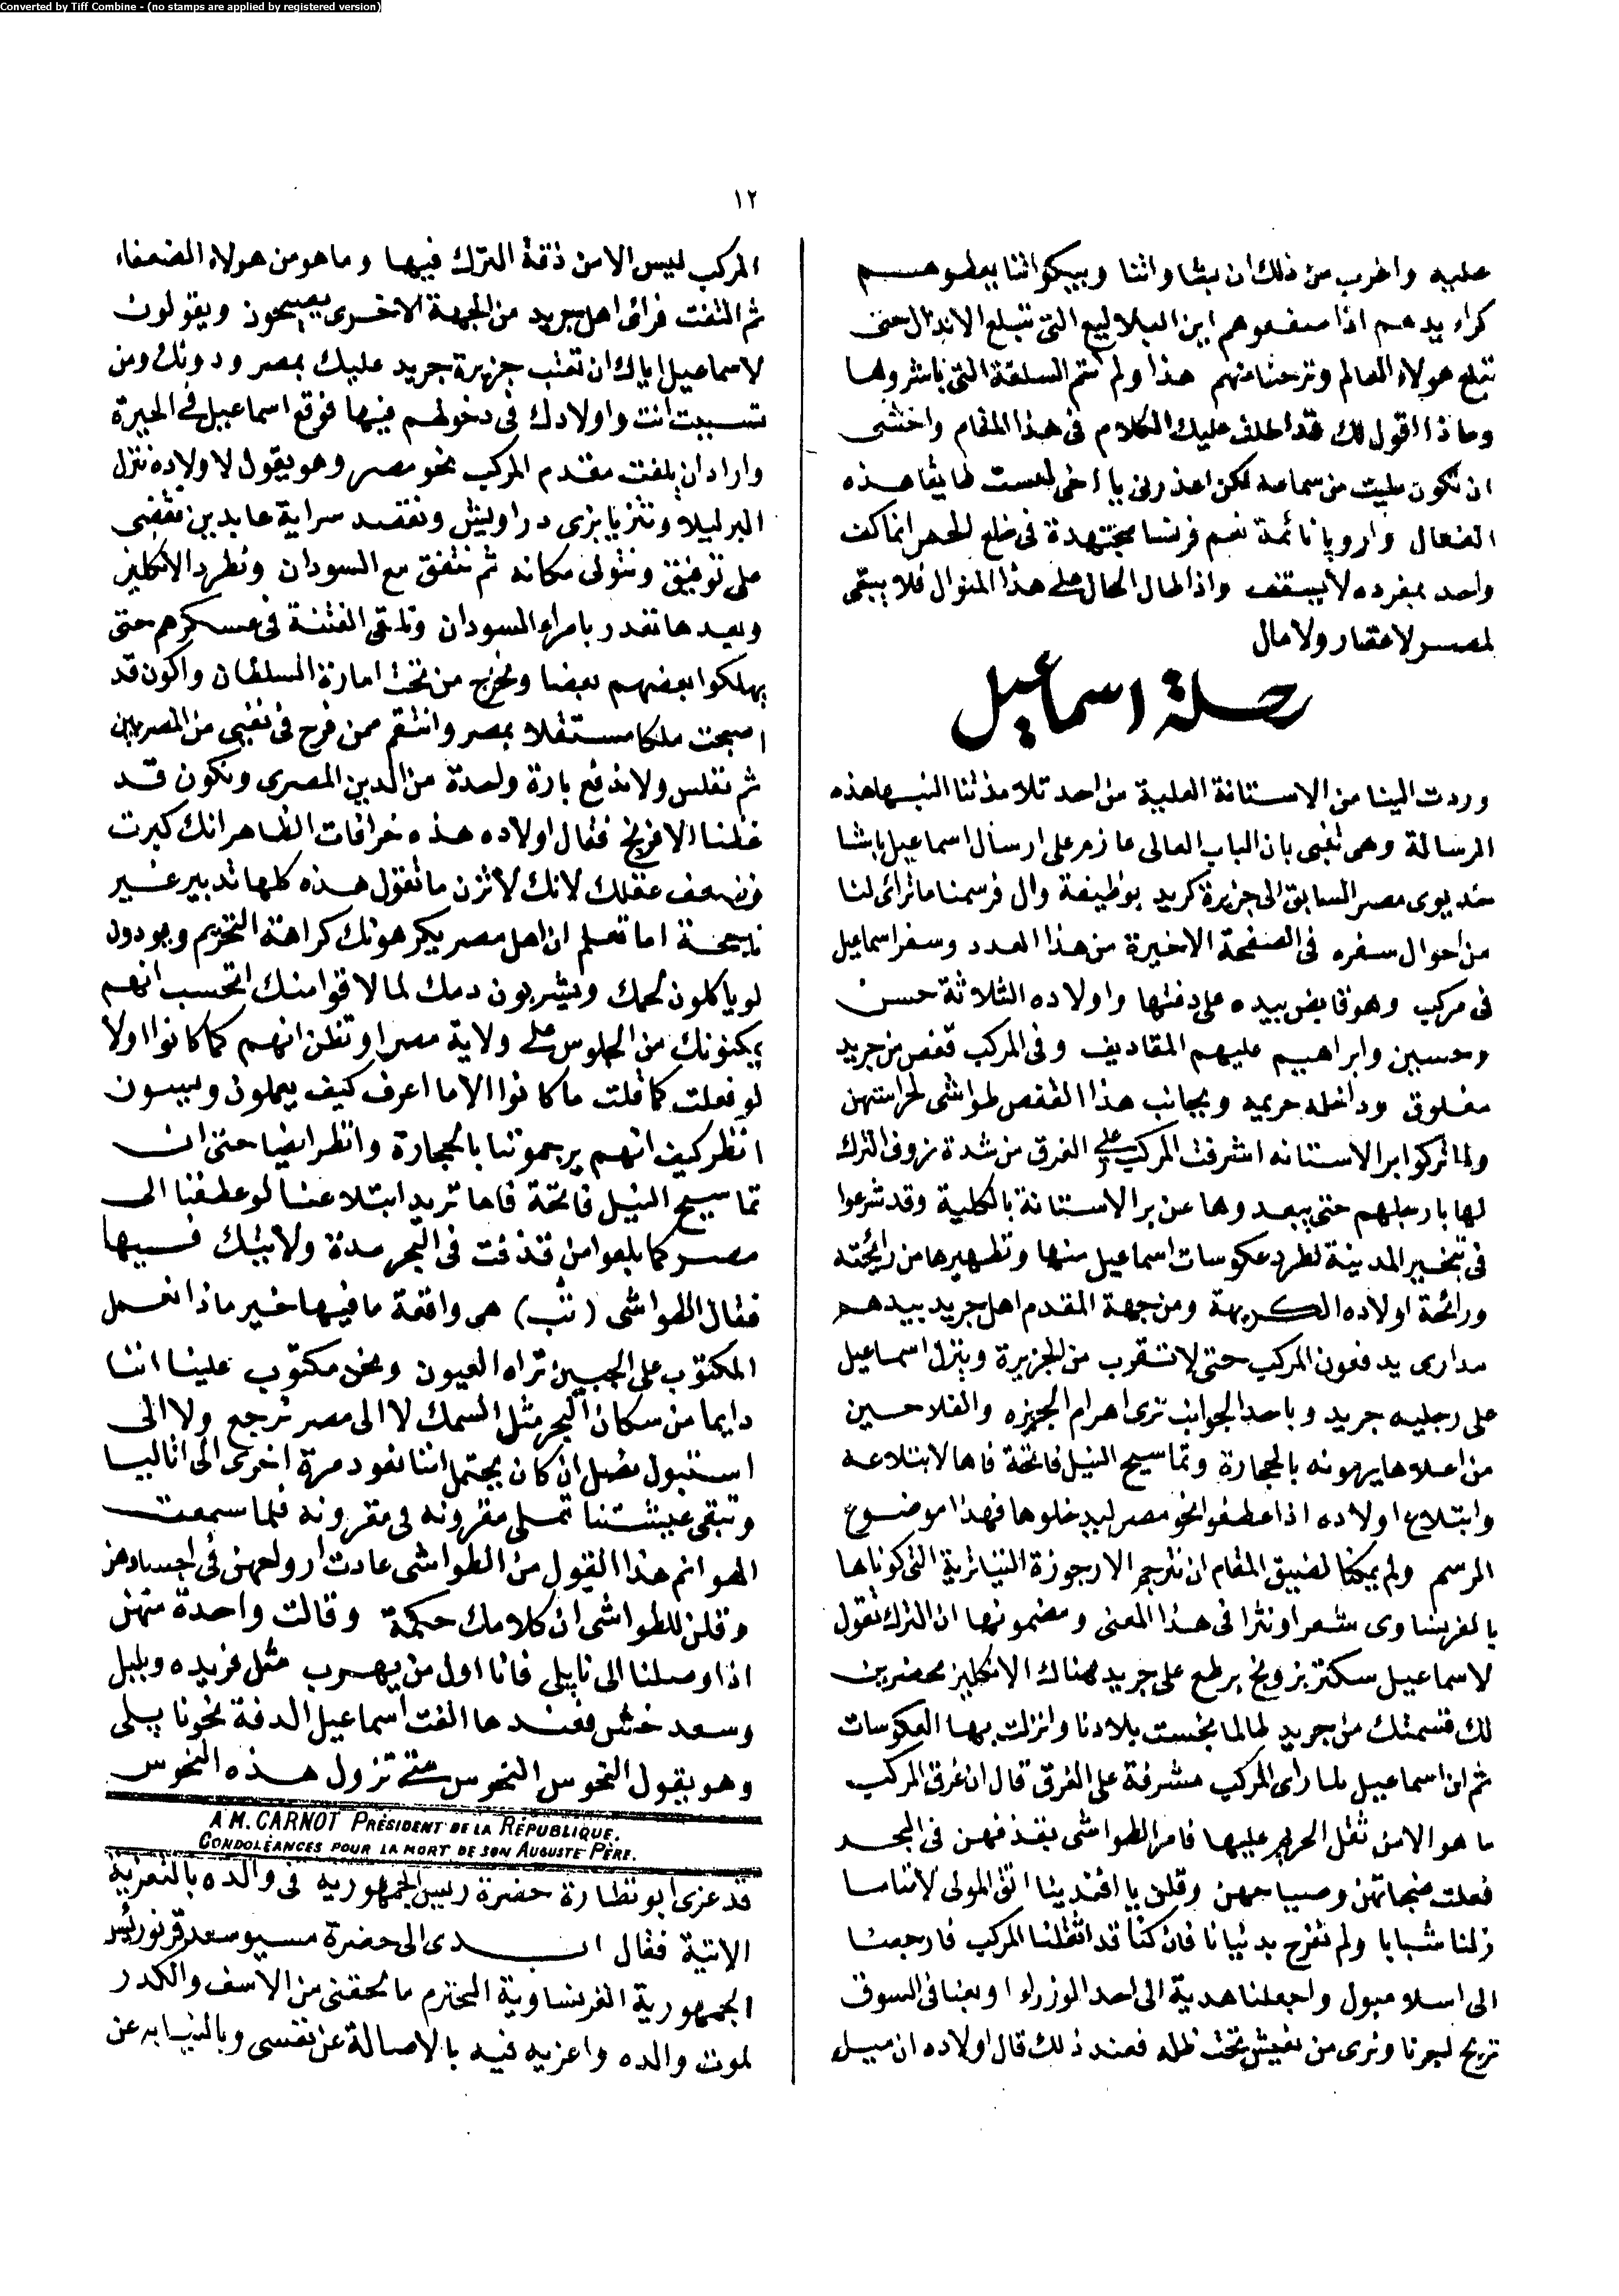 Converted by Tiff Combine - (no stamps are applied by registered version)
١٢
عليه واغرب من ذلك ان بشاواتنا وبيكواتنا يعطوهم
كراء يدهم اذا صفعوهم اين البلاليع التى تبلع الانذال حتى
تبلع هولاء العالم وترحنا منهم هذا ولم تتم السلقة التى باشروها
وماذا اقول لك قد اطلت عليك الكلام فى هذا المقام واخشى
ان تكون مليت من سماعه لكن اعذرنى يا اخى لست طايقا هذه
الفعال واروپا نائمة نعم فرنسا مجتهدة فى خلع الحمر انما كف
واحد بمفرده لا يسقف واذا طال الحال على هذا المنوال فلا يبقى
لمصر لا عقار ولا مال
رحلة اسماعيل
وردت الينا من الاستانة العلية من احد تلامذتنا النبها هذه
الرسالة وهى تنبى بان الباب العالى عازم على ارسال اسماعيل باشا
خديوى مصر السابق الى جزيرة كريد بوظيفة وال فرسمنا ما ترائ لنا
من احوال سفره فى الصفحة الاخيرة من هذا العدد وسفر اسماعيل
فى مركب وهو قابض بيده على دفتها واولاده الثلاثة حسن
وحسين وابراهيم عليهم المقاديف وفى المركب قفص من جريد
مغلوق وداخله حريمه وبجانب هذا القفص طواشى لحراستهن
ولما تركوا بر الاستانه اشرفت المركب على الغرق من شدة زوف الترك
لها بارجلهم حتى يبعدوها عن بر الاستانة بالكلية وقد شرعوا
فى تبخير المدينة لطرد عكوسات اسماعيل منها وتطهيرها من رائحته
ورائحة اولاده الكريهة ومن جهة المقدم اهل جريد بيدهم
مدارى يدفعون المركب حتى لا تقرب من الجزيرة وينزل اسماعيل
على رجليه جريد وباحد الجوانب ترى اهرام الجيزه والفلاحين
من اعلاها يرمونه بالحجارة وتماسيح النيل فاتحة فاها لابتلاعه
وابتلاع اولاده اذا عطفوا نحو مصر ليدخلوها فهذا موضوع
الرسم ولم يمكنا لضيق المقام ان نترجم الارجوزة التياترية التى كوناها
بالفرنساوى شعرا ونثرا فى هذا المعنى ومضمونها ان الترك تقول
لاسماعيل سكتر بزونج برطع على جريد هناك الانكليز محضرين
لك قسمتك من جريد طالما نخست بلادنا وانزلت بها العكوسات
ثم ان اسماعيل لما راى المركب مشرفة على الغرق قال ان غرق المركب
ما هو الا من ثقل الحريم عليها فامر الطواشى بقذفهن فى البحر
فعلت ضجاتهن وصياحهن وقلن يا افندينا اتق المولى لاننا ما
زلنا شبابا ولم نفرح بدنيانا فان كنا قد اثقلنا المركب فارجعنا
الى اسلامبول واجعلنا هدية الى احد الوزراء او بعنا فى السوق
تربح لبرنا ونرى من نعيش تحت ظله فعند ذلك قال اولاده ان ميل
المركب ليس الا من ذقة الترك فيها وما هو من هولاء الضعفاء
ثم التفت فرائ اهل جريد من الجهة الاخرى يصيحون ويقولون
لاسماعيل اياك ان تعتب جزيرة جريد عليك بمصر ودونك ومن
تسببت انت واولادك فى دخولهم فيها فوقع اسماعيل فى الحيرة
واراد ان يلفت مقدم المركب نحو مصر وهو يقول لاولاده ننزل
البر ليلا ونتزيا بزى دراويش ونقصد سراية عابدين نقضى
على توفيق ونتولى مكانه ثم نتفق مع السودان ونطرد الانكليز
وبعدها نغدر بامراء السودان ونلقى الفتنة فى عسكرهم حتى
يهلكوا بعضهم بعضا ونخرج من تحت امارة السلطان واكون قد
اصبحت ملكا مستقلا بمصر وانتقم ممن فرح فى نفيى من المصريين
ثم نفلس ولا ندفع بارة واحدة من الدين المصرى ونكون قد
غظنا الافرنج فقال اولاده هذه خرافات الظاهر انك كبرت
وضعف عقلك لانك لا تزن ما تقول هذه كلها تدبير غير
ناجحة اما تعلم ان اهل مصر يكرهونك كراهة التحريم ويودون
لو ياكلون لحمك ويشربون دمك لما لاقوا منك اتحسب انهم
يمكنونك من الجلوس على ولاية مصر او تظن انهم كما كانوا اولا
لو فعلت كما قلت ما كانوا الا ما اعرف كيف يعملون ويسون
انظر كيف انهم يرجمونا بالحجارة وانظر ايضا حتى ان
تماسيح النيل فاتحة فاها تريد ابتلاعنا لو عطفنا الى
مصر كما بلعوا من قذفت فى البحر مدة ولايتك فيها
فقال الطواشى (نثب) هى واقعة ما فيها خير ماذا نعمل
المكتوب على الجبين تراه العيون ونحن مكتوب علينا اننا
دايما من سكان البحر مثل السمك لا الى مصر نرجع ولا الى
استنبول نصل ان كان يحتمل اننا نعود مرة اخرى الى اناليا
وتبقى عيشتنا تملى مقرونه فى مقرونه فلما سمعت
الهوانم هذا القول من الطواشى عادت ارواحهن فى اجسادهن
وقلن للطواشى ان كلامك حكمة وقالت واحدة منهن
اذا وصلنا الى ناپلى فانا اول من يهرب مثل فريده وبلبل
وسعد خش فعندها الفت اسماعيل الدفة نحو ناپلى
وهو يقول النحوس النحوس متى تزول هذه النحوس
A M. CARNOT PRÉSIDENT DE LA RÉPUBLIQUE.
CONDOLÉANCES POUR LA MORT DE SON AUGUSTE PÈRE.
قد عزى ابو نظارة حضرة رييس الجمهورية فى والده بالتعزية
الاتية فقال ابدى الى حضرة مسيو سعد قرنو رئيس
الجمهورية الفرنساوية المحترم ما لحقنى من الاسف والكدر
لموت والده واعزيه فيه بالاصالة عن نفسى وبالنيابه عن